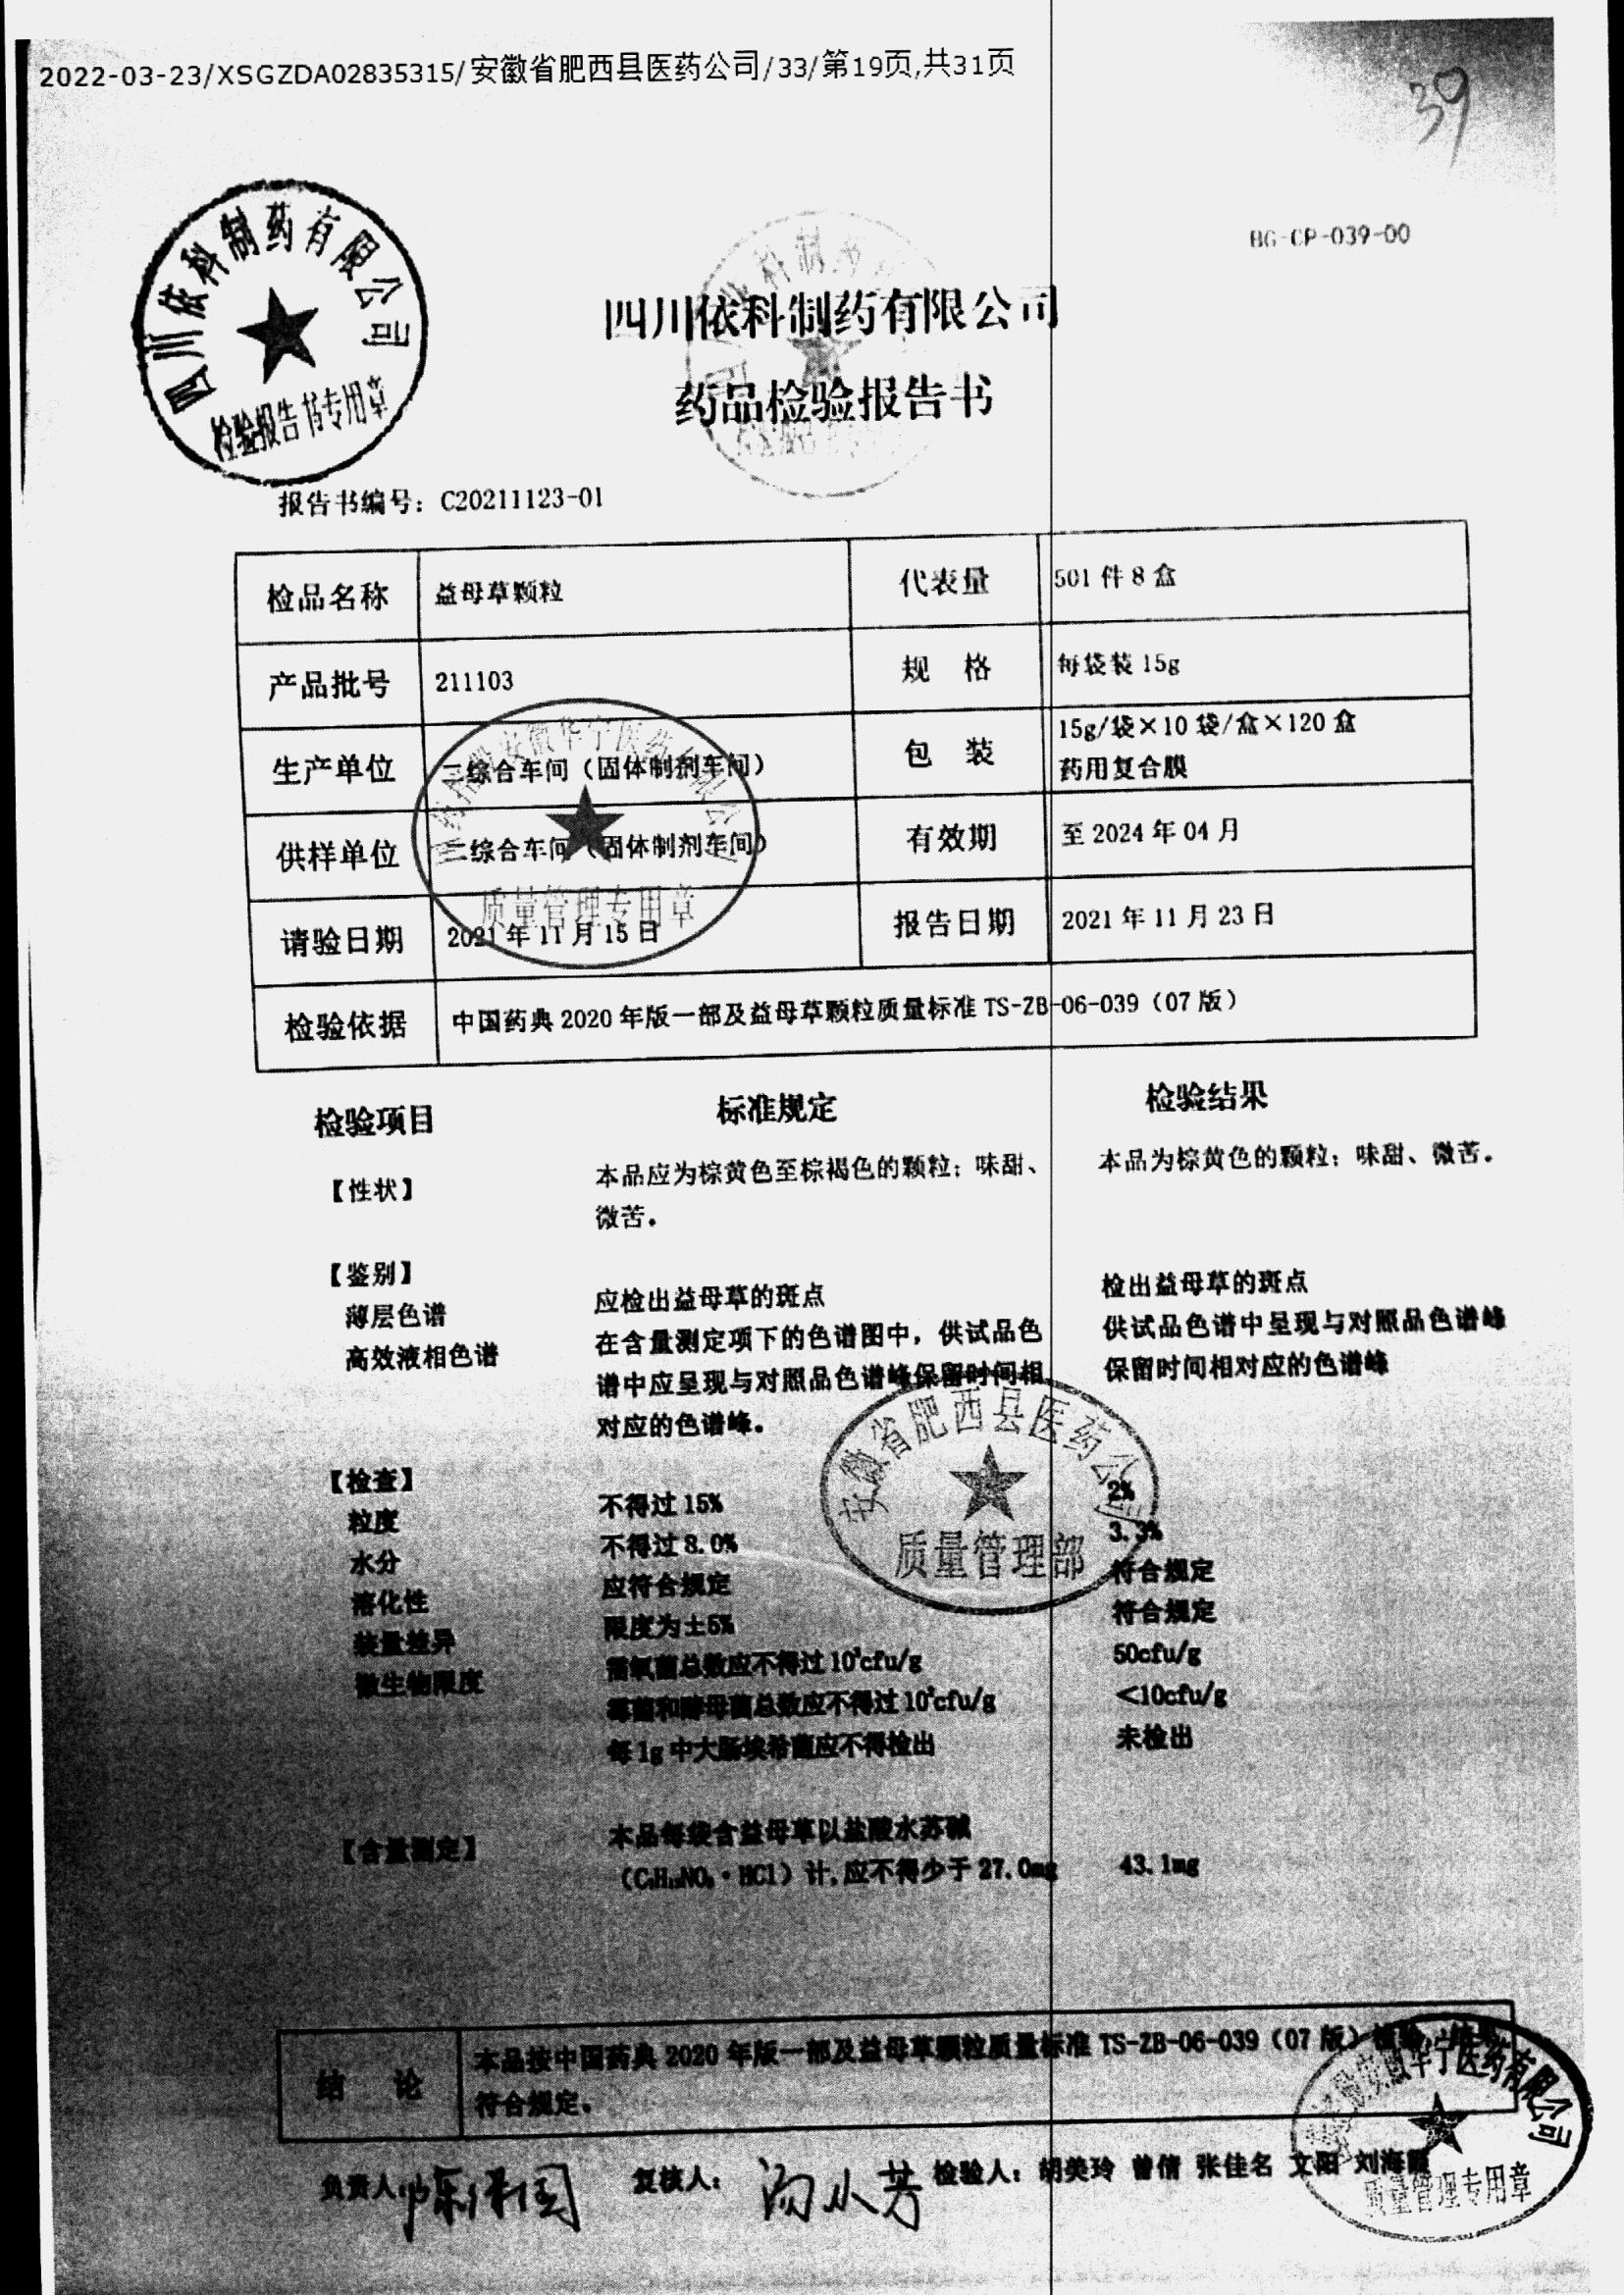 2022-03-23/XSGZDA02835315/安徽省肥西县医药公司/33/第19页,共31页
39
BG-CP-039-00
四川依科制药有限公司
检验报告书专用章
四川依科制药有限公司
药品检验报告书
报告书编号：C20211123-01
检品名称 益母草颗粒 代表量 501 件 8 盒
产品批号 211103 规 格 每袋装 15g
生产单位 二综合车间（固体制剂车间） 包 装 15g/袋×10 袋/盒×120 盒
药用复合膜
供样单位 二综合车间（固体制剂车间） 有效期 至 2024 年 04 月
质量管理专用章
请验日期 2021 年 11 月 15 日 报告日期 2021 年 11 月 23 日
检验依据 中国药典 2020 年版一部及益母草颗粒质量标准 TS-ZB-06-039（07 版）
检验项目 标准规定 检验结果
【性状】 本品应为棕黄色至棕褐色的颗粒；味甜、 本品为棕黄色的颗粒；味甜、微苦。
微苦。
【鉴别】
薄层色谱 应检出益母草的斑点 检出益母草的斑点
高效液相色谱 在含量测定项下的色谱图中，供试品色 供试品色谱中呈现与对照品色谱峰
谱中应呈现与对照品色谱峰保留时间相 保留时间相对应的色谱峰
对应的色谱峰。
安徽省肥西县医药公司
质量管理部
【检查】
粒度 不得过 15% 2%
水分 不得过 8.0% 3.3%
溶化性 应符合规定 符合规定
装量差异 限度为±5% 符合规定
微生物限度 需氧菌总数应不得过 10³cfu/g 50cfu/g
霉菌和酵母菌总数应不得过 10²cfu/g <10cfu/g
每 1g 中大肠埃希菌应不得检出 未检出
【含量测定】 本品每袋含益母草以盐酸水苏碱
·HCl）计,应不得少于 27.0mg 43.1mg
结 论 本品按中国药典 2020 年版一部及益母草颗粒质量标准 TS-ZB-06-039（07 版）检验，结果
符合规定。
华宁医药有限公司
质量管理专用章
负责人： 复核人： 检验人：胡美玲 曾倩 张佳名 文阳 刘海霞